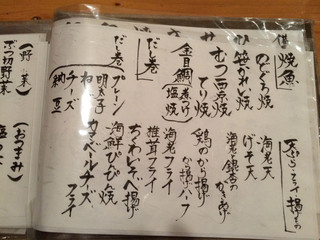 焼魚
のどぐろ焼
笹かれい焼
むつ西京焼
てり焼
金目鯛
塩焼
煮つけ
だし巻
だし巻
プレーン
明太子
ねぎ
チーズ
納豆
天ぷら・フライ・揚げもの
海老天
げそ天
海老銀杏のかきあげ
鶏のから揚げ
から揚げハーフ
海老フライ
椎茸フライ
ちくわいそべ揚げ
海鮮びび焼
カマンベールチーズフライ
(野菜)
ぶつ切野菜
(おつまみ)